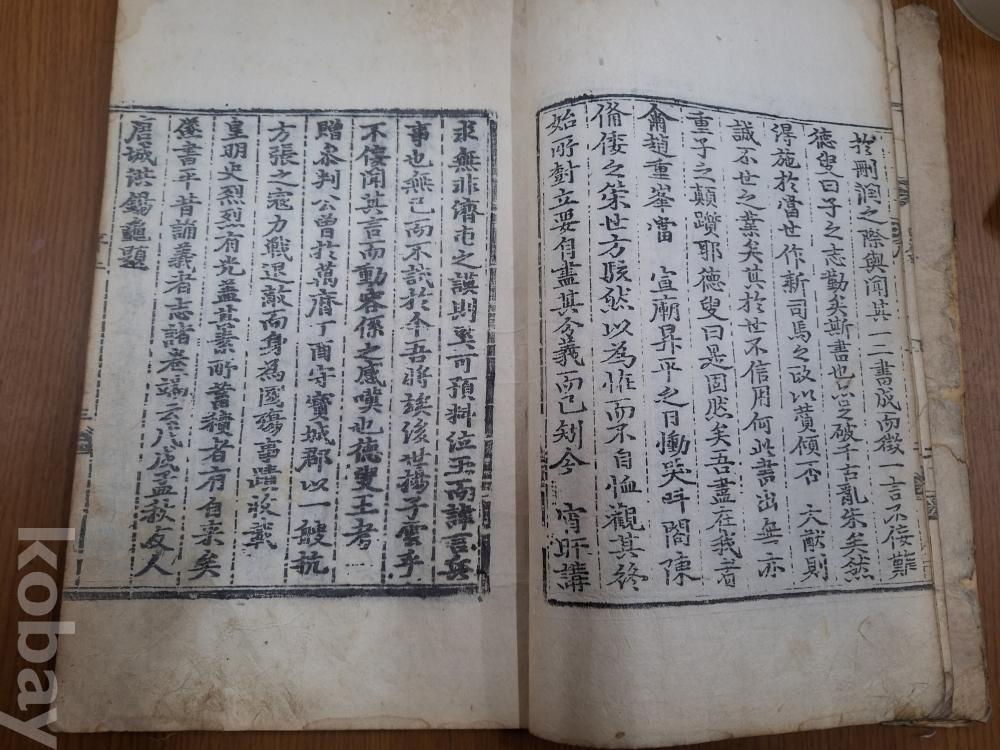 於刪潤之際與聞其一二書成而徵一言不佞難
德叟曰子之志勤矣斯盡也心之破千古亂朱矣然
得施於當世作新司馬之政以黃傾否 大猷則
誠不世之業矣其於世不信用何此書出無亦
重子之顛躓耶德叟曰是固然矣吾盡在我者
爾趙重峯當 宣廟昇平之日慟哭叫閽陳
備倭之策世方駭然以為恠而不自恤觀其終
始所對立要自盡其分義而已矧今 宵旰講
求無非濟屯之謨則奚可預料位玉而諱言哉
事也無已而不試於今吾將族後世揚子雲乎
不佞聞其言而動容係之感嘆也德叟王考
贈參判公曾於萬曆丁酉守寶城郡以一艘抗
方張之寇力戰退敵而身為國殤事蹟收載
皇明史烈烈有光盖其素所蓄積者有自来矣
遂書平昔誦義者志諸卷端云 戊戌孟秋友人
唐城洪錫龜題
kobay